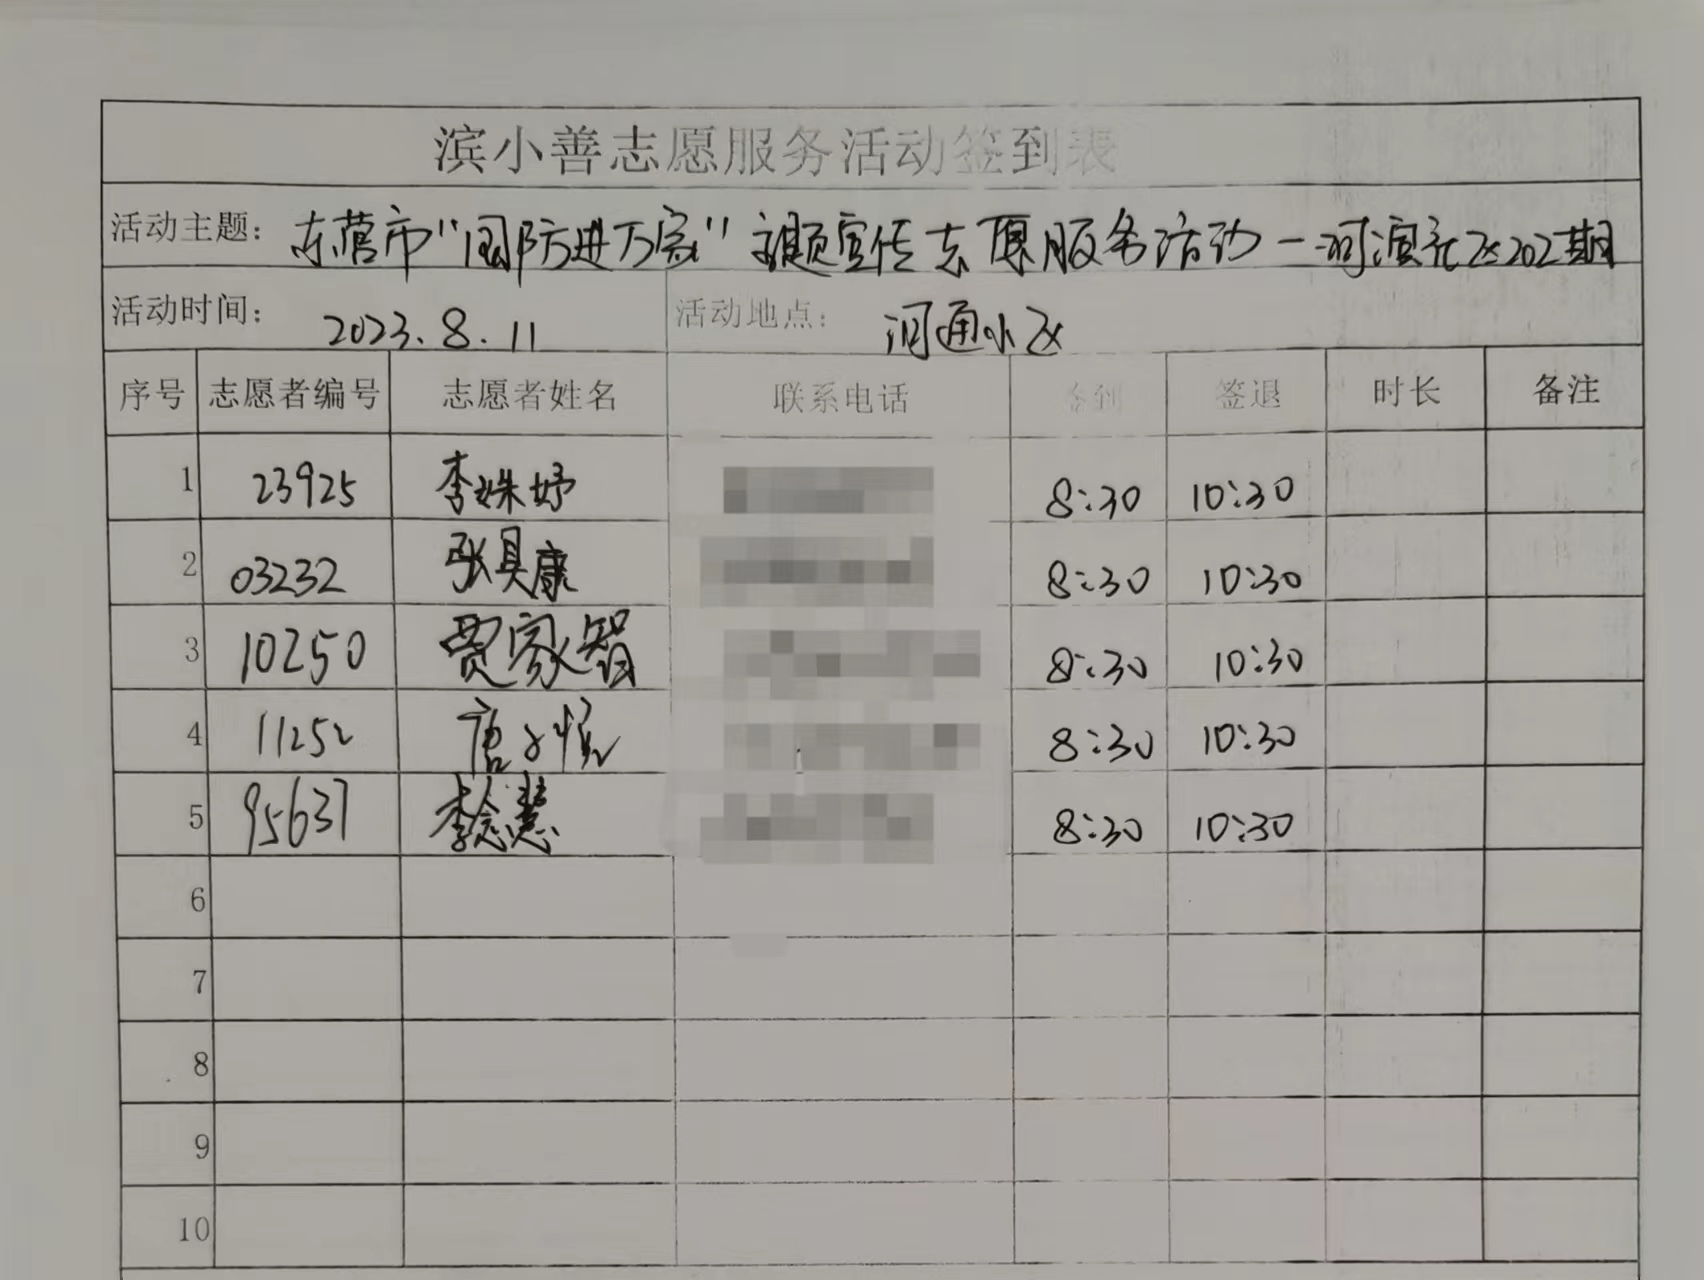 滨小善志愿服务活动签到表
活动主题： 东营市“国防进万家”主题宣传志愿服务活动一河滨社区202期
活动时间： 2023.8.11 活动地点： 河通小区
序号 志愿者编号 志愿者姓名 联系电话 签到 签退 时长 备注
1 23925 李姝妤 8:30 10:30
2 03232 张具康 8:30 10:30
3 10250 贾家智 8:30 10:30
4 11252 唐子惊 8:30 10:30
5 95637 李念慧 8:30 10:30
6
7
8
9
10